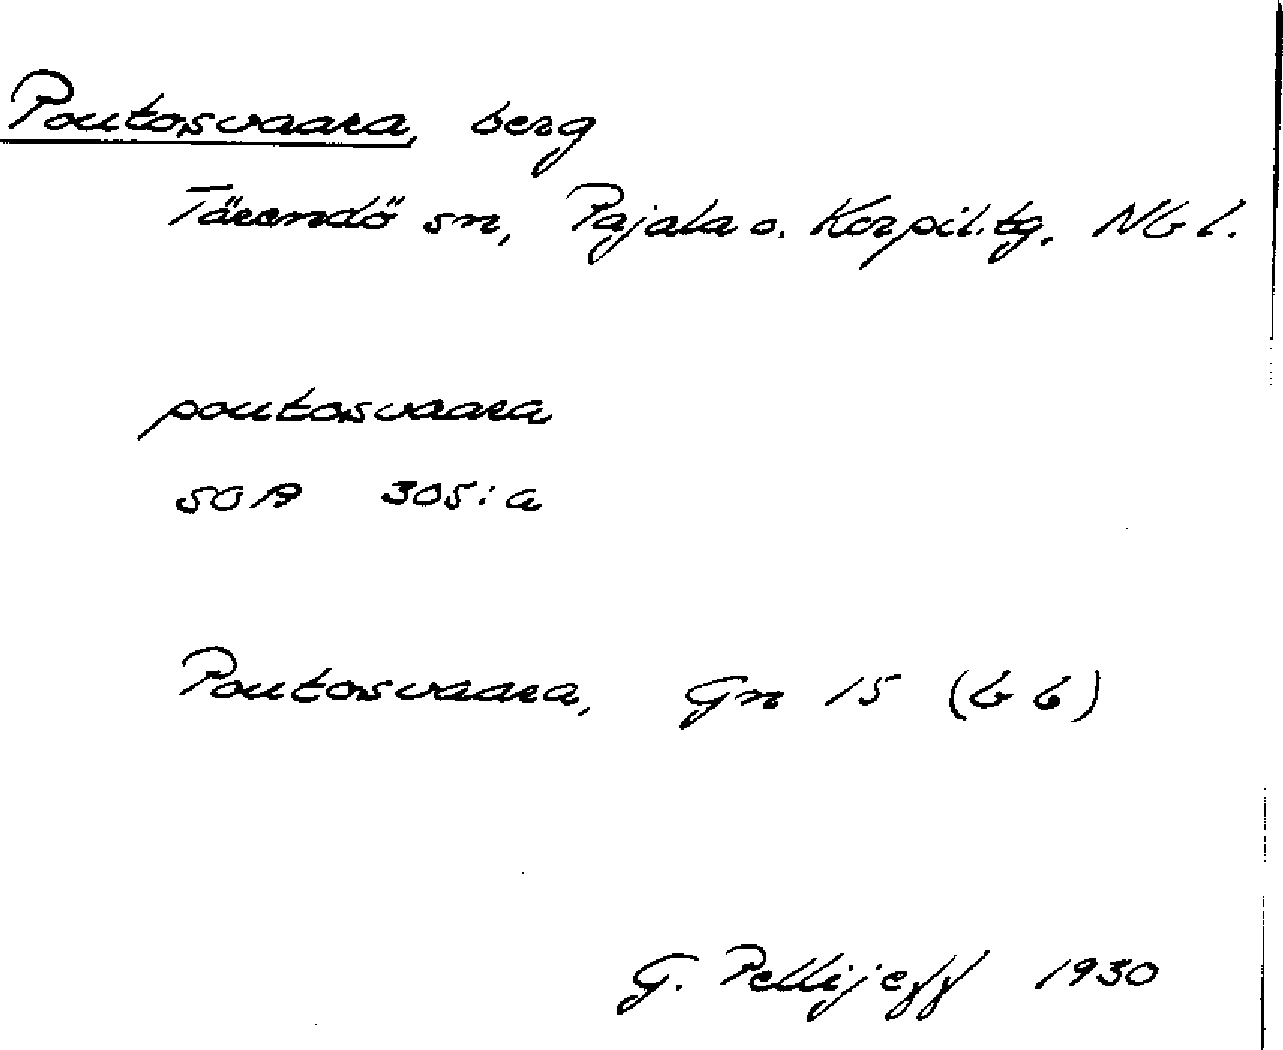 Poutosvaara, berg
Tärendö sn, Pajala o. Korpil. tg, Nb l.
poutosvaara
SOA 305:a
Poutosvaara, Gn 15 (b 6)
G. Pellijeff 1930